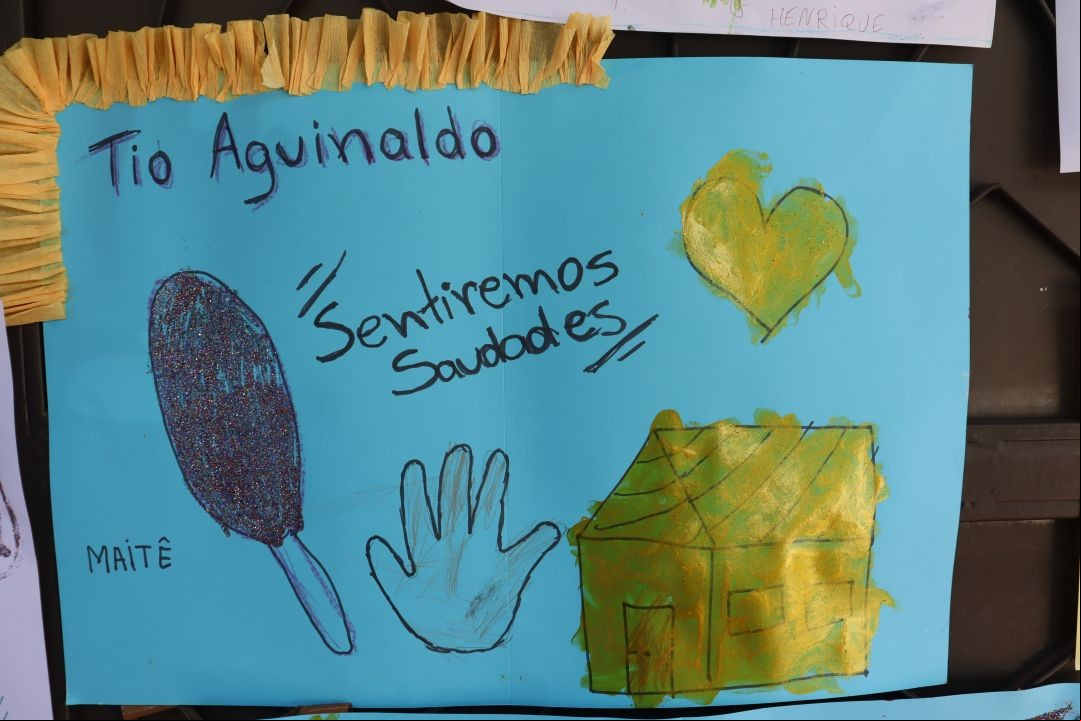 HENRIQUE
Tio Aguinaldo
"Sentiremos
Saudades"
MAITÊ